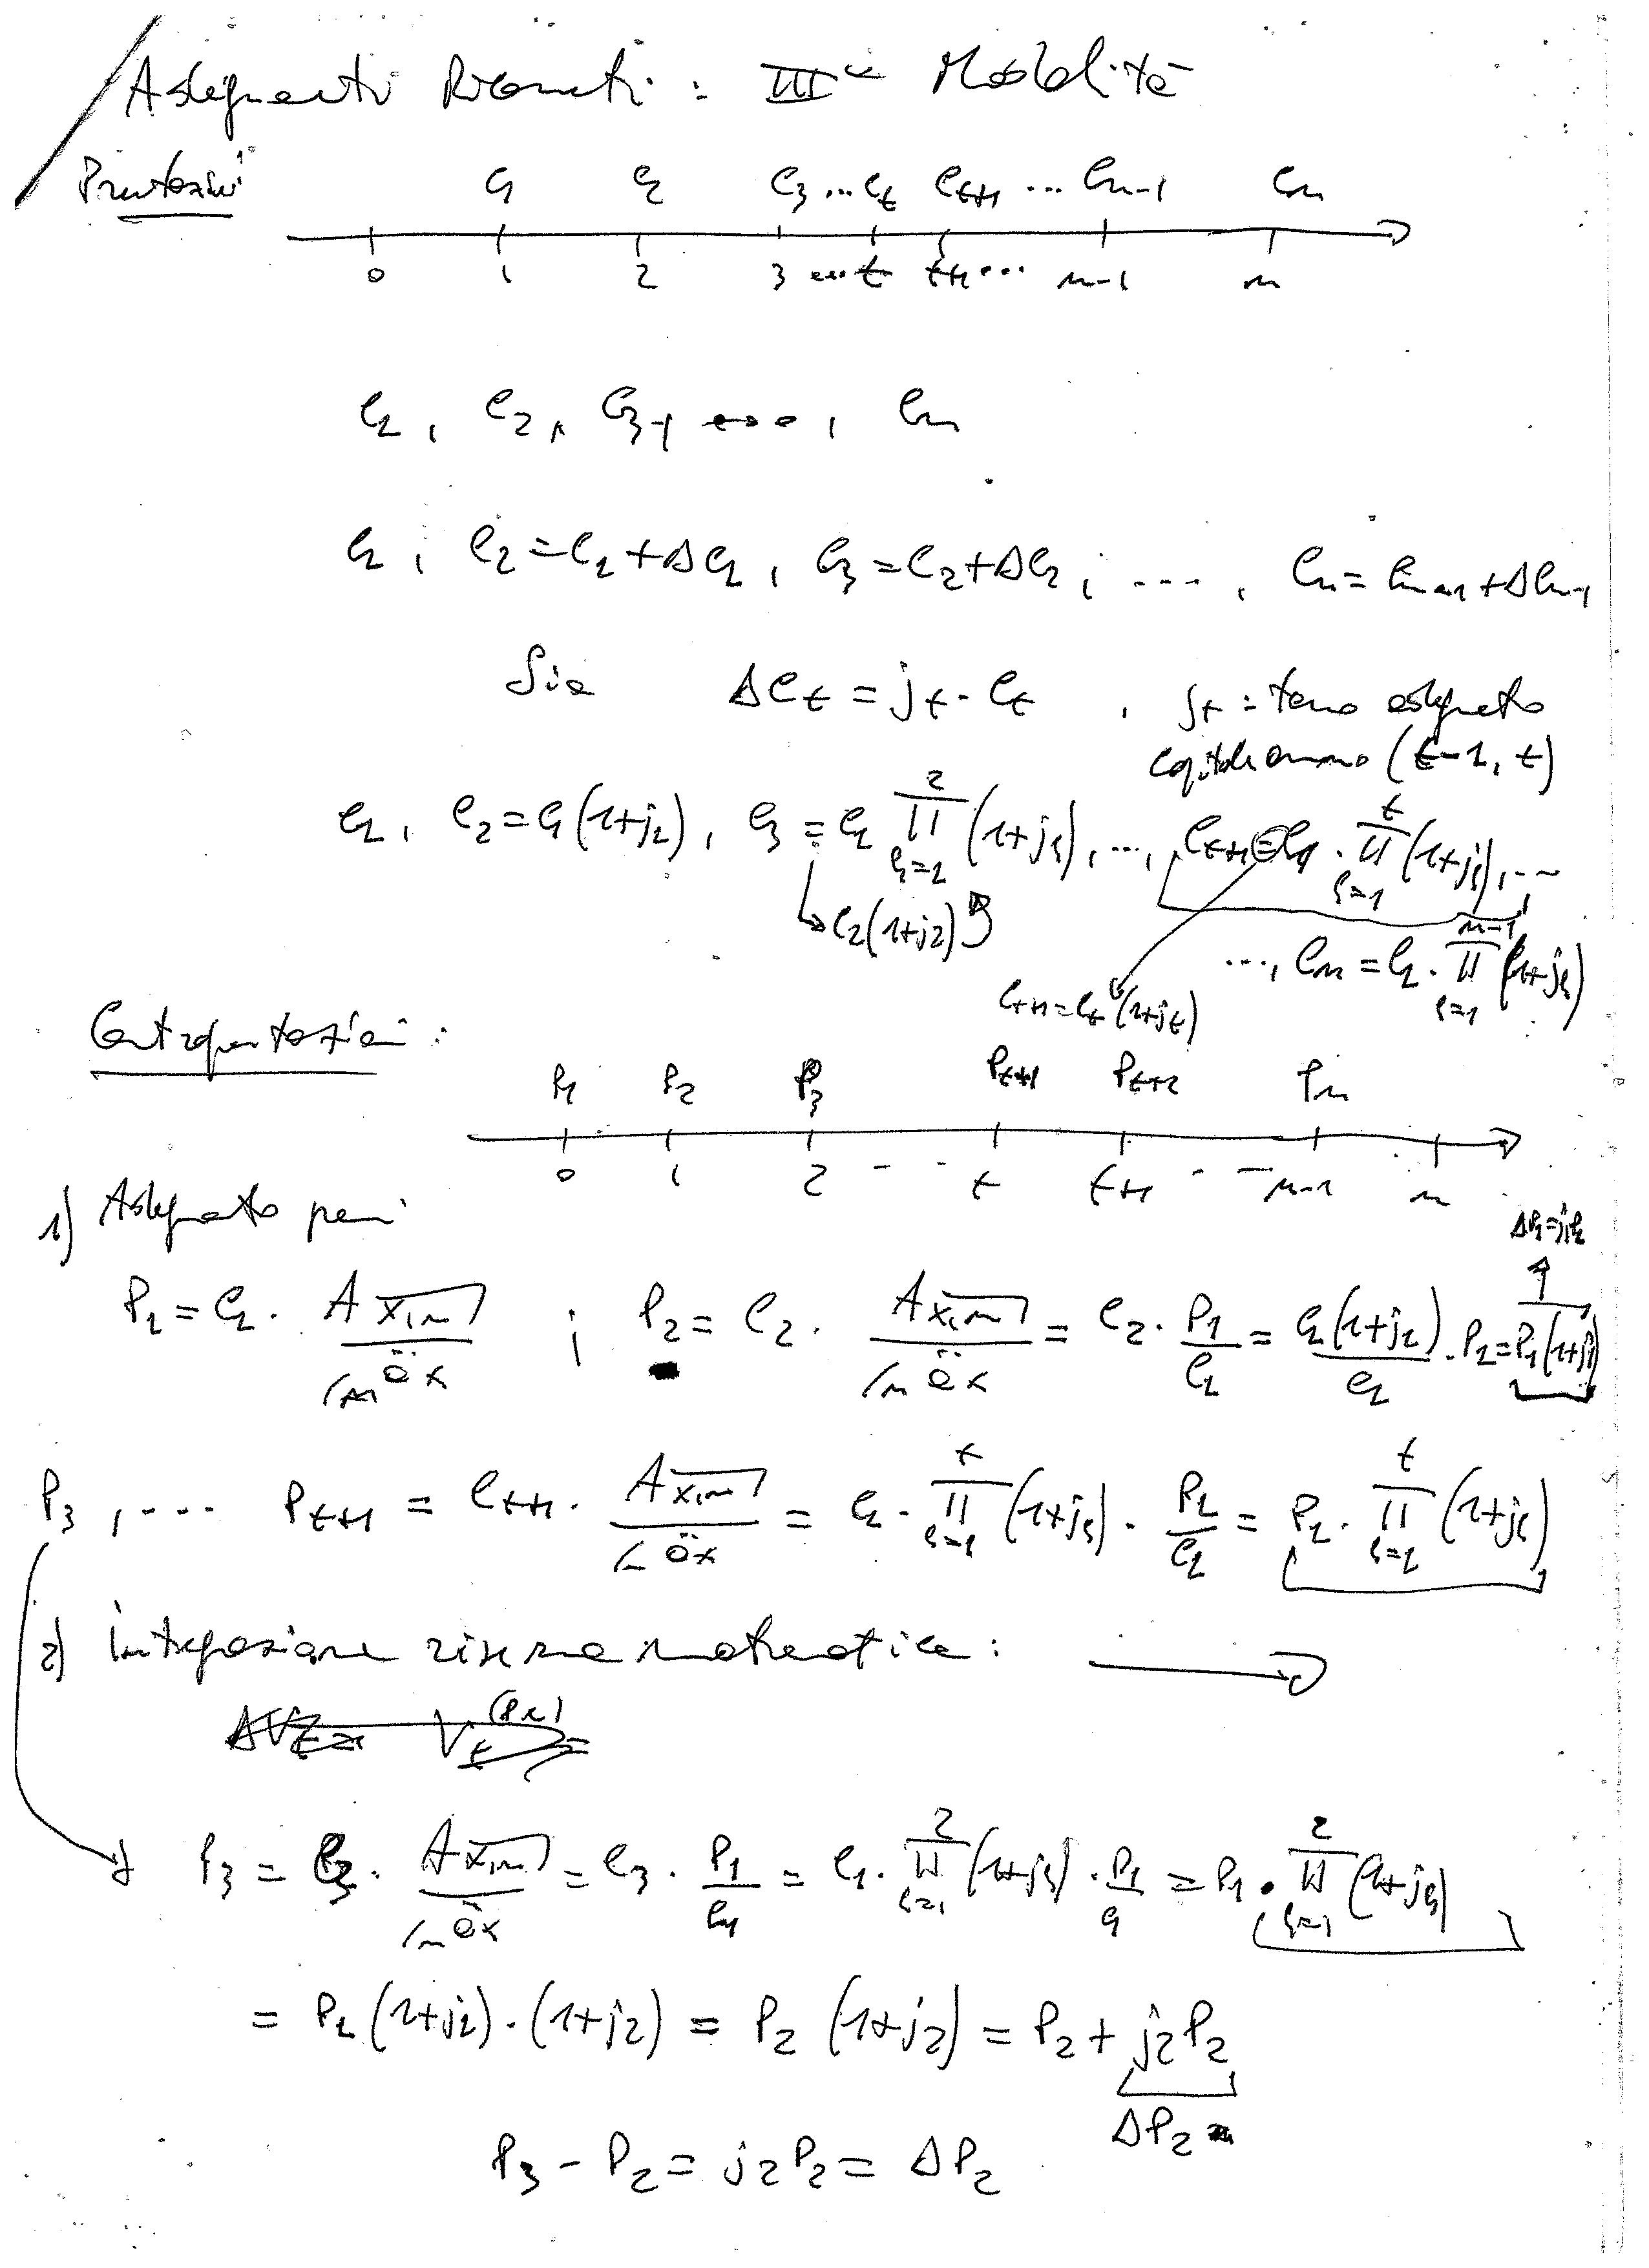 Assegnati Ricorrenti: III^a Modalità
Prestazioni
C_1 C_2 C_3 ... C_t C_{t+1} ... C_{n-1} C_n
0 1 2 3 ... t t+1 ... n-1 n
C_1, C_2, C_3, ...., C_n
C_1, C_2 = C_1 + ΔC_1, C_3 = C_2 + ΔC_2, ...., C_n = C_{n-1} + ΔC_{n-1}
Sia ΔC_t = j_t · C_t , j_t = tasso assegnato
(t-1, t)
C_1, C_2 = C_1(1+j_1), C_3 = C_1 ∏_{s=1}^{2} (1+j_s), ..., C_{t+1} = C_1 · ∏_{s=1}^{t} (1+j_s), ...
C_2(1+j_2)
..., C_n = C_1 · ∏_{s=1}^{n-1} (1+j_s)
C_{t+1} = C_t (1+j_t)
Controprestazioni:
P_1 P_2 P_3 P_{t+1} P_{t+2} P_n
0 1 2 - - t t+1 - - n-1 n
1) Assegnato per
ΔP_1 = j_1P_1
P_1 = C_1 · A_{x,n⌉} / /n ä_x ; P_2 = C_2 · A_{x,n⌉} / /n ä_x = C_2 · P_1/C_1 = C_1(1+j_1)/C_1 · P_1 = P_1(1+j_1)
P_3, .... P_{t+1} = C_{t+1} · A_{x,n⌉} / /n ä_x = C_1 · ∏_{s=1}^{t} (1+j_s) · P_1/C_1 = P_1 · ∏_{s=1}^{t} (1+j_s)
2) Integrazione riserva matematica: →
P_3 = C_3 · A_{x,n⌉} / /n ä_x = C_3 · P_1/C_1 = C_1 · ∏_{s=1}^{2} (1+j_s) · P_1/C_1 = P_1 · ∏_{s=1}^{2} (1+j_s)
= P_1 (1+j_1) · (1+j_2) = P_2 (1+j_2) = P_2 + j_2P_2
ΔP_2
P_3 - P_2 = j_2P_2 = ΔP_2